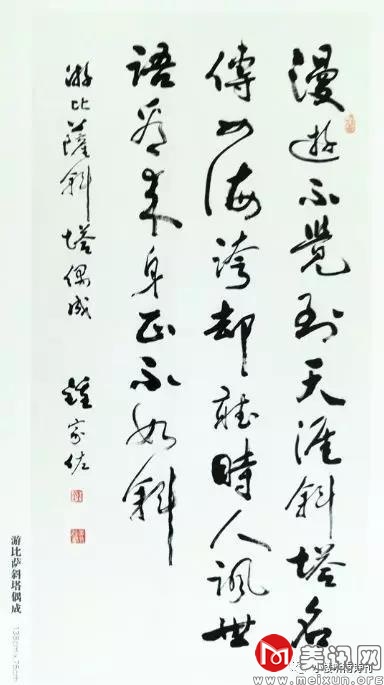 漫遊不覺到天涯斜塔名
傳四海誇却聽時人諷世
語來身正不如斜
游比薩斜塔偶成 鍾家佐
游比萨斜塔偶成
138cm×75cm
美讯网
www.meixun.org